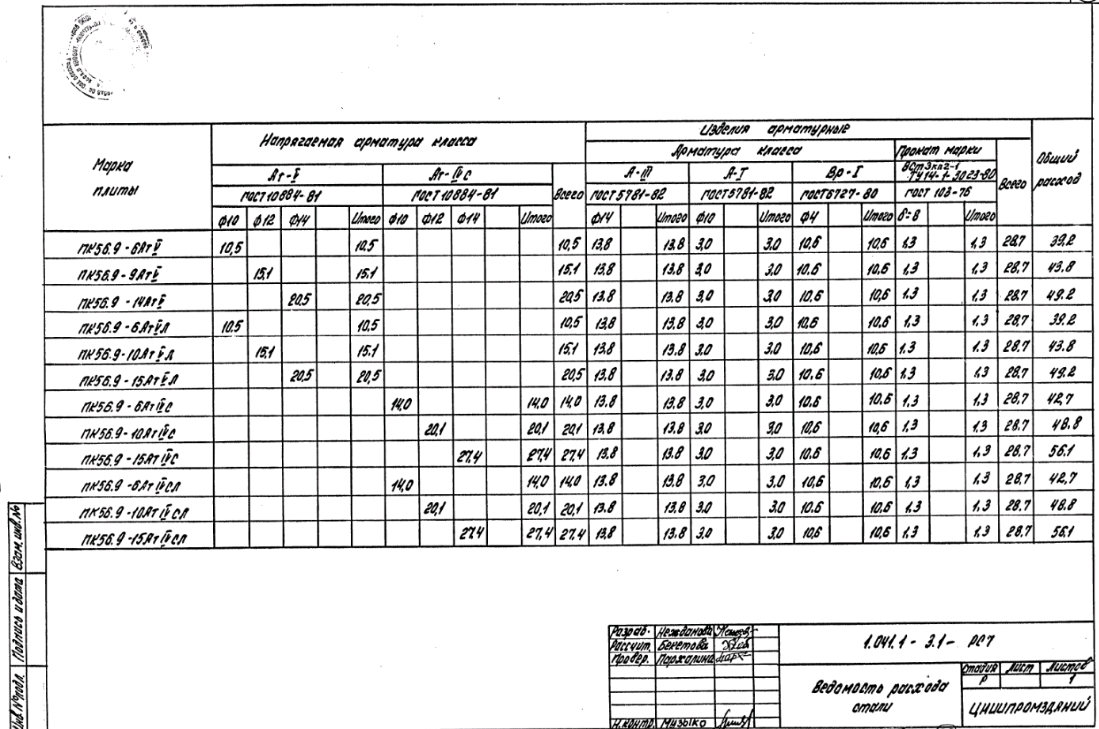 Марка плиты
Напрягаемая арматура класса
Изделия арматурные
Общий расход
Арматура класса
Прокат марки
Ат-V
Ат-IVс
Всего
А-III
А-I
Вр-I
ВСт3кп2-1 ТУ14-1-3023-80
Всего
ГОСТ 10884-81
ГОСТ 10884-81
ГОСТ 5781-82
ГОСТ 5781-82
ГОСТ 6727-80
ГОСТ 103-76
Ф10 Ф12 Ф14 Итого Ф10 Ф12 Ф14 Итого Ф14 Итого Ф10 Итого Ф4 Итого δ=8 Итого
ПК56.9-6АтV 10,5 10,5 10,5 13,8 13,8 3,0 3,0 10,6 10,6 1,3 1,3 28,7 39,2
ПК56.9-9АтV 15,1 15,1 15,1 13,8 13,8 3,0 3,0 10,6 10,6 1,3 1,3 28,7 43,8
ПК56.9-14АтV 20,5 20,5 20,5 13,8 13,8 3,0 3,0 10,6 10,6 1,3 1,3 28,7 49,2
ПК56.9-6АтVл 10,5 10,5 10,5 13,8 13,8 3,0 3,0 10,6 10,6 1,3 1,3 28,7 39,2
ПК56.9-10АтVл 15,1 15,1 15,1 13,8 13,8 3,0 3,0 10,6 10,6 1,3 1,3 28,7 43,8
ПК56.9-15АтVл 20,5 20,5 20,5 13,8 13,8 3,0 3,0 10,6 10,6 1,3 1,3 28,7 49,2
ПК56.9-6АтIVс 14,0 14,0 14,0 13,8 13,8 3,0 3,0 10,6 10,6 1,3 1,3 28,7 42,7
ПК56.9-10АтIVс 20,1 20,1 20,1 13,8 13,8 3,0 3,0 10,6 10,6 1,3 1,3 28,7 48,8
ПК56.9-15АтIVс 27,4 27,4 27,4 13,8 13,8 3,0 3,0 10,6 10,6 1,3 1,3 28,7 56,1
ПК56.9-6АтIVсл 14,0 14,0 14,0 13,8 13,8 3,0 3,0 10,6 10,6 1,3 1,3 28,7 42,7
ПК56.9-10АтIVсл 20,1 20,1 20,1 13,8 13,8 3,0 3,0 10,6 10,6 1,3 1,3 28,7 48,8
ПК56.9-15АтIVсл 27,4 27,4 27,4 13,8 13,8 3,0 3,0 10,6 10,6 1,3 1,3 28,7 56,1
Инв.№подл. Подпись и дата Взам. инв.№
Разраб. Нежданова
Рассчит. Бекетова
Провер. Паркалина
Н.контр. Музыко
1.041.1-3.1-РС7
Ведомость расхода стали
Стадия Лист Листов
Р 1
ЦНИИПРОМЗДАНИЙ